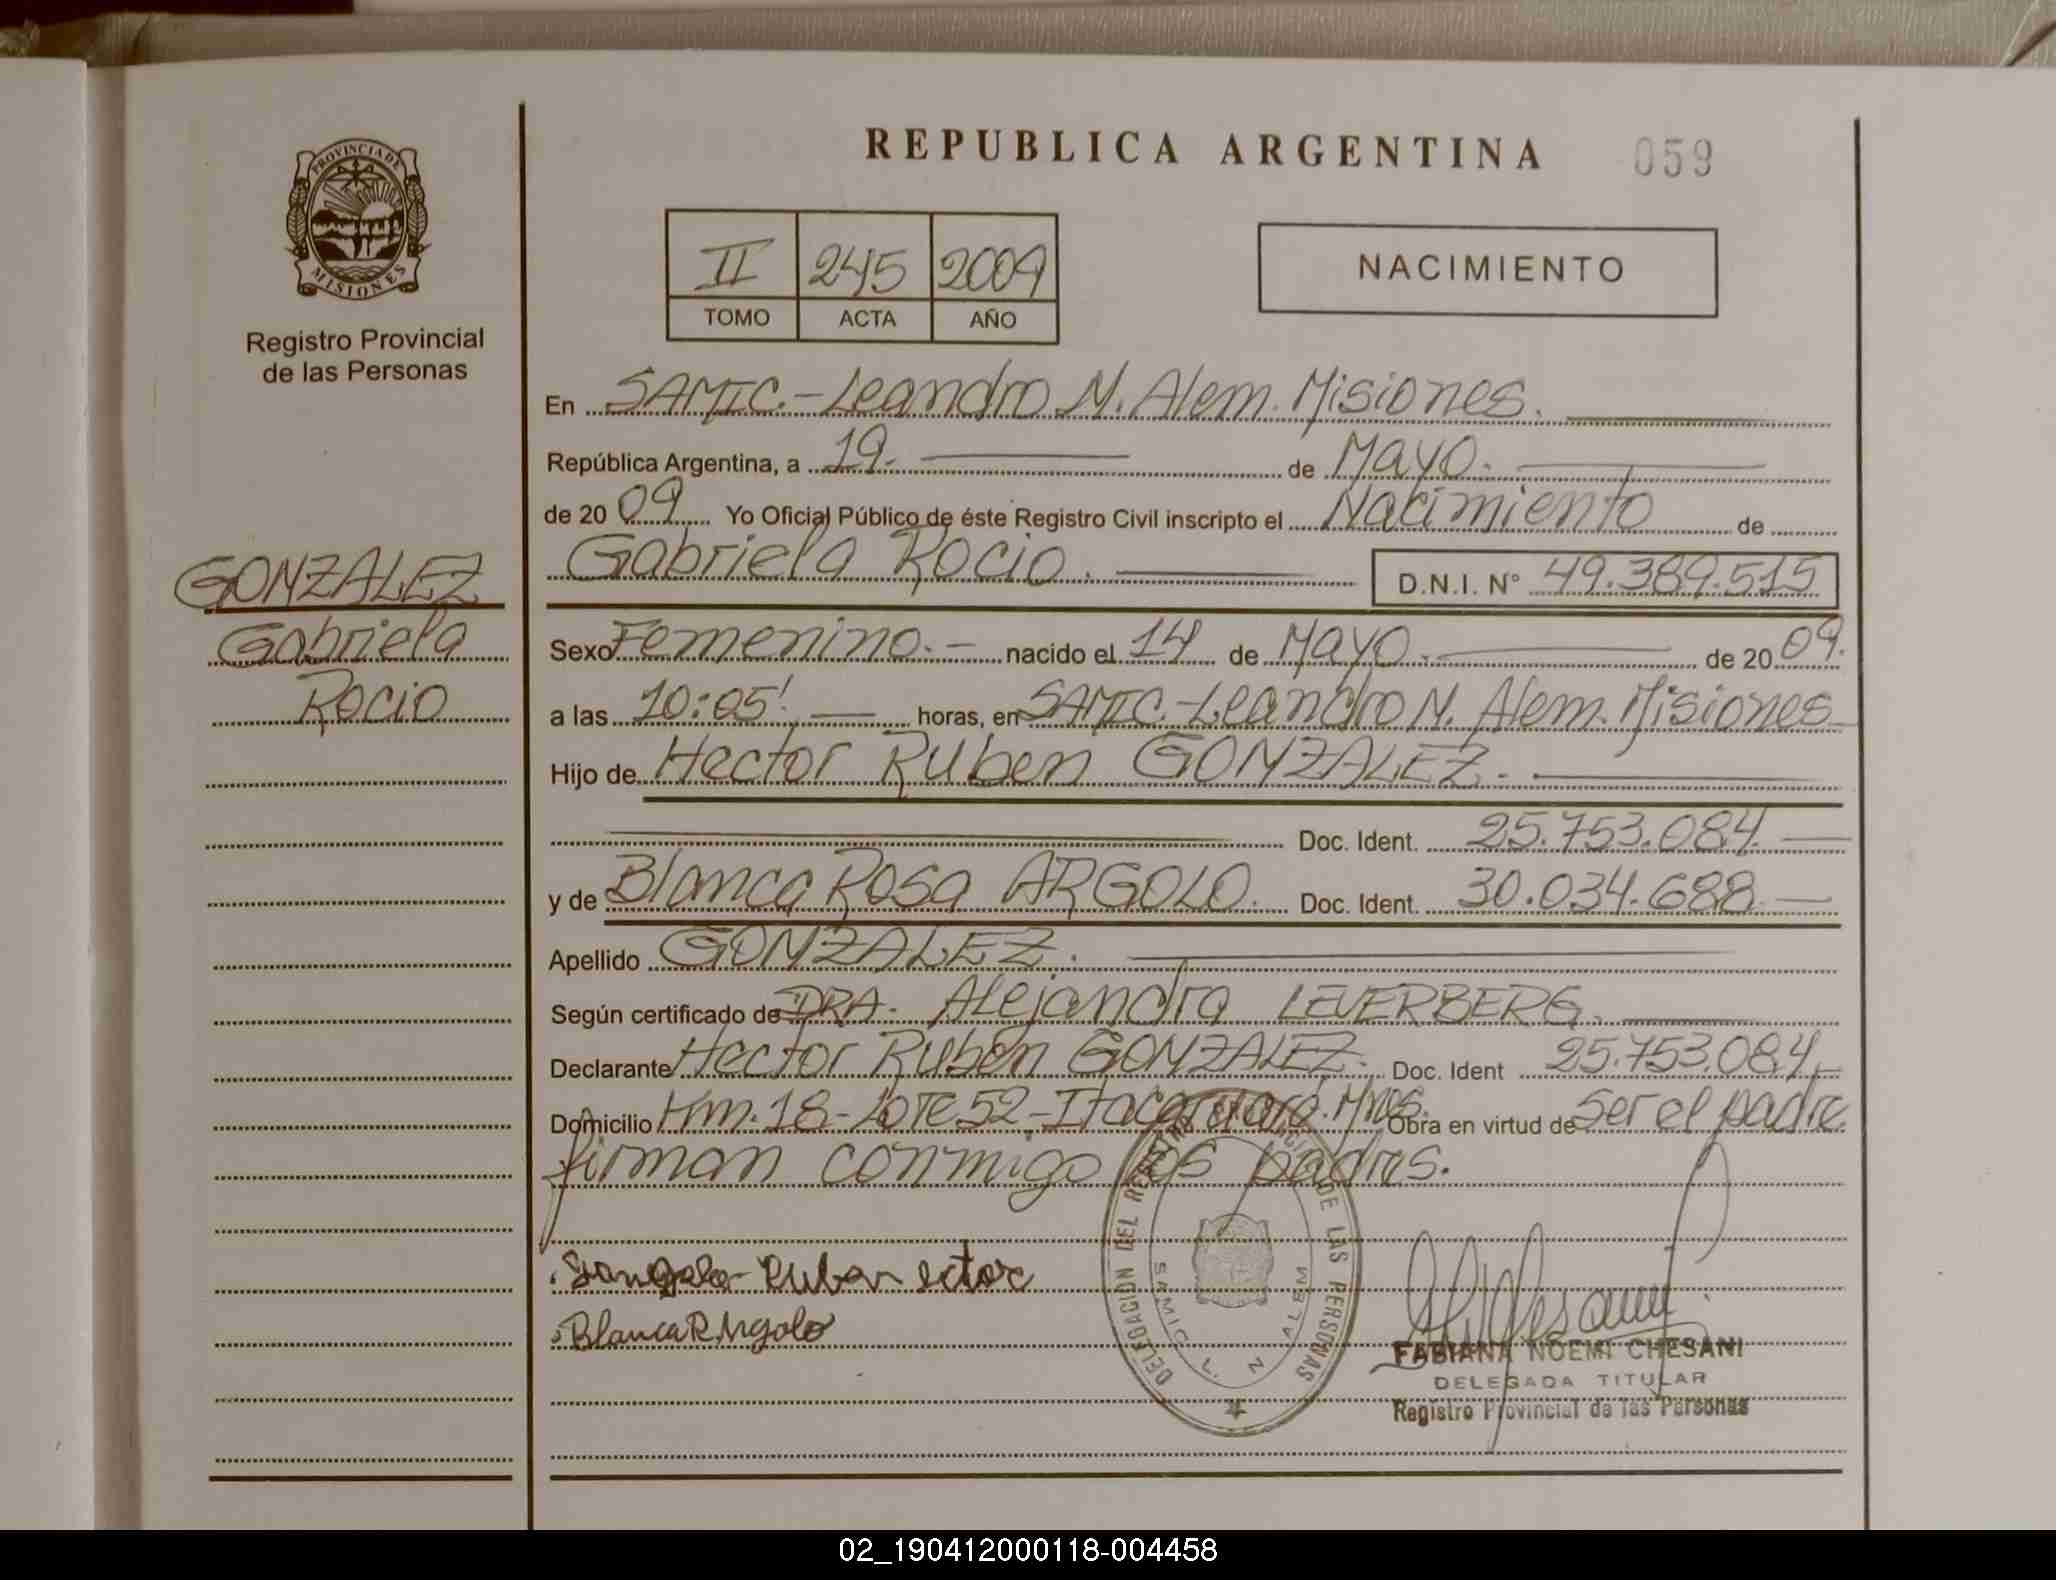 REPUBLICA ARGENTINA 059
PROVINCIA DE
MISIONES
Registro Provincial
de las Personas
II 245 2009
TOMO ACTA AÑO
NACIMIENTO
En SAMIC.-Leandro N. Alem. Misiones.
República Argentina, a 19. de Mayo.
de 2009 Yo Oficial Público de éste Registro Civil inscripto el Nacimiento de
Gabriela Rocio. D.N.I. N° 49.389.515
GONZALEZ
Gabriela
Rocio
Sexo Femenino.- nacido el 14 de Mayo. de 2009.
a las 10:05' horas, en SAMIC.-Leandro N. Alem. Misiones
Hijo de Hector Ruben GONZALEZ.
Doc. Ident. 25.753.084
y de Blanca Rosa ARGOLO. Doc. Ident. 30.034.688
Apellido GONZALEZ.
Según certificado de DRA. Alejandra LEVERBERG.
Declarante Hector Ruben GONZALEZ. Doc. Ident 25.753.084
Domicilio Km.18-Lote 52-Itacaruaré. Mnes. Obra en virtud de Ser el padre
firman conmigo los padres.
Ruben ector
Blanca R Argolo
DELEGACION DEL REGISTRO PROVINCIAL DE LAS PERSONAS
SAMIC L. N ALEM
FABIANA NOEMI CHESANI
DELEGADA TITULAR
Registro Provincial de las Personas
02_190412000118-004458